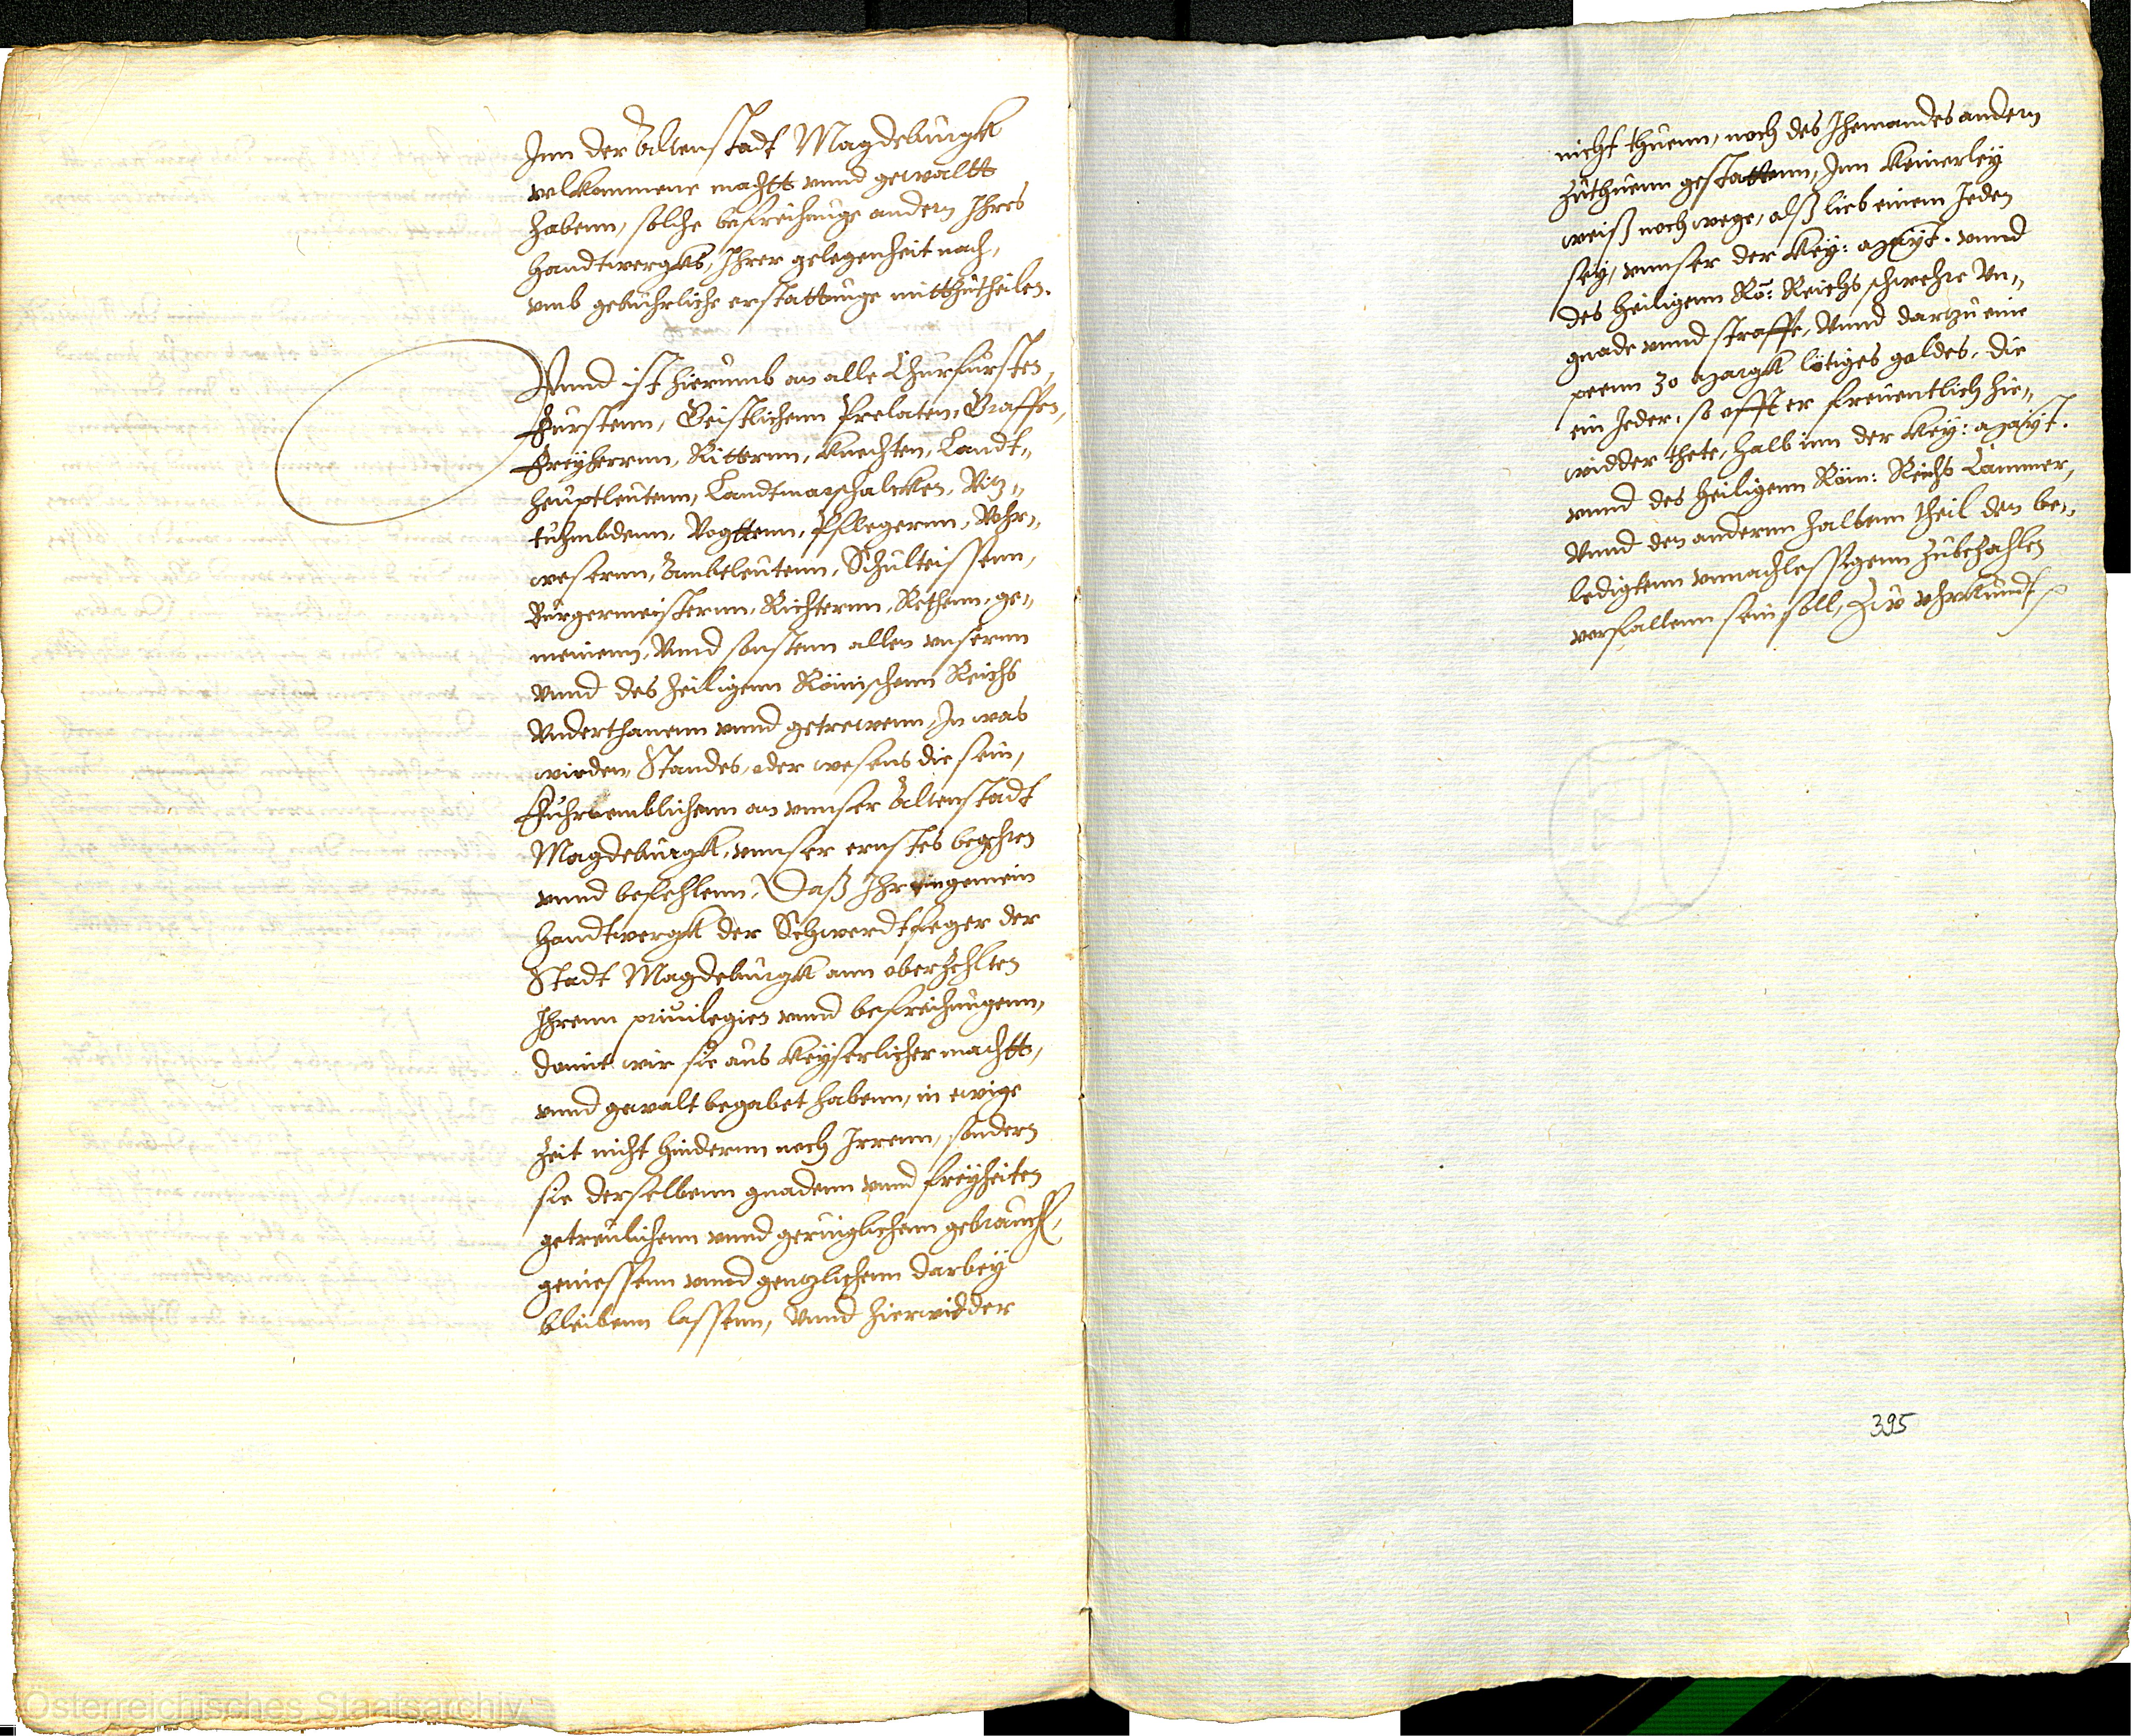 Inn der Altenstadt Magdeburgk
volkommene machtt vnnd gewaltt
habenn, solche befreihunge andern Ihres
handtwergks, Ihrer gelegenheit nach,
vmb gebührliche erstattunge mitthutheilen.
Vnnd ist hierumb an alle Churfursten,
Furstenn, Geistlichenn Prelaten, Graffen,
Freyherrnn, Ritternn, Knechten, Landt„
heuptleutenn, Landtmarschalcken, Vitz„
tuhmbdenn, Vogttenn, Pflegernn, Vohr„
wesernn, Ambtleutenn, Schulteissenn,
Burgermeisternn, Richternn, Rethenn, ge„
meinenn, Vnnd sonstenn allen vnsernn
vnnd des heiligenn Römischenn Reichs
Vnderthanenn vnnd getrewenn, In was
wirden, Standes, oder wesens die sein,
Fuhrnemblichenn an vnnser Altenstadt
Magdeburgk, vnnser ernstes begehren
vnnd befehlenn, Daß Ihr ein gemein
handtwergk der Schwerdtfeger der
Stadt Magdeburgk ann oberzehlten
Ihrenn priuilegien vnnd befreihungenn,
damit wir sie aus Keyserlicher machtt,
vnnd gewalt begabet habenn, in ewige
Zeit nicht hindernn noch Irrenn, sondern
sie derselbenn gnadenn vnnd freyheiten
getreulichenn vnnd geruiglichenn gebrauch,
geniessenn vnnd gentzlichenn darbey
bleibenn lassenn, Vnnd hierwidder
nicht thuenn, noch des Ihemandes andern
Zuthuenn gestattenn, Inn keinerley
weiß noch wege, alß lieb einem Jeden
sey, vnnser der Key: Mayt. vnnd
des heiligenn Rö: Reichs schwehre Vn„
gnade vnnd straffe, Vnnd dartzu eine
peenn 30 Margk lötiges goldes, die
ein Jeder, so offt er freuentlich hie„
widder thete, halb inn der Key: Mayt.
vnnd des heiligenn Röm: Reichs Cammer,
Vnnd den andernn halbenn theil den be„
ledigtenn vnnachlessigenn Zubezahlen
verfallenn sein soll, Zw vhrkundt
395
Österreichisches Staatsarchiv